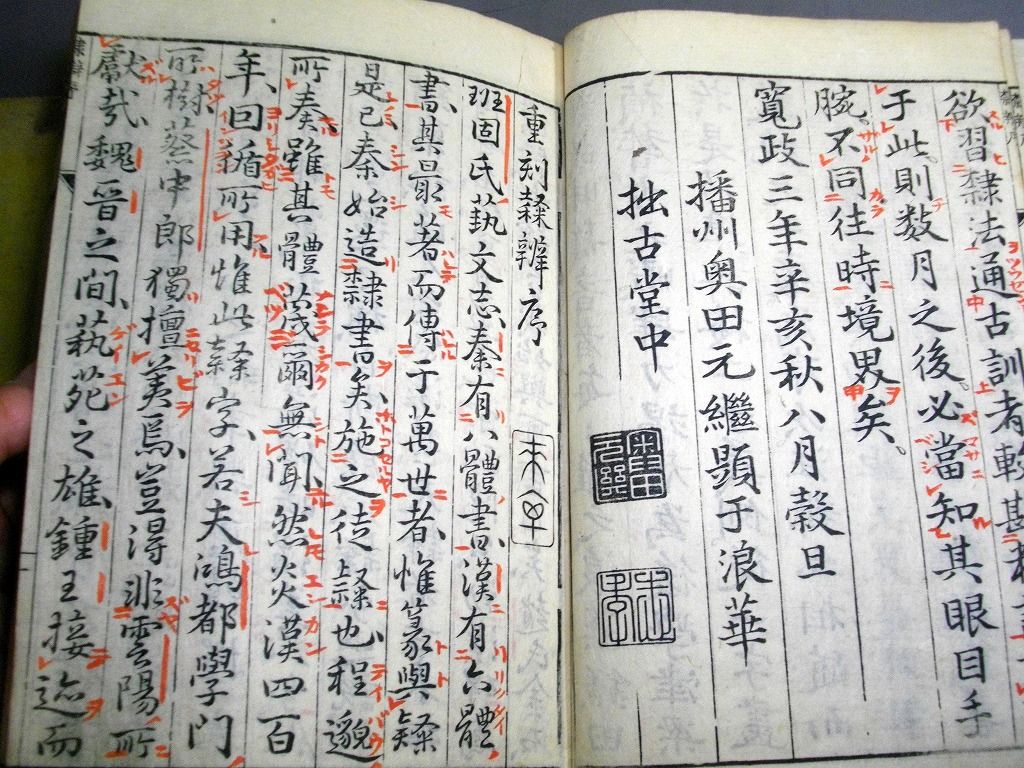 欲習隷法通古訓者
于此。則数月之後。必當知其眼目手
腕。不同往時境界矣。
寛政三年辛亥秋八月穀旦
播州奥田元繼題于浪華
拙古堂中
重刻隷辨序
班固氏蓺文志、秦有八體書、漢有六體
書、其最著而傳于萬世者、惟篆與隷
是已、秦始造隷書矣、施之徒隷也、程邈
所奏、雖其體蕞爾無聞、然炎漢四百
年、回循所用、惟此隷字、若夫鴻都學門
所樹、蔡中郎獨擅美焉、豈得非雲陽所
獻哉、魏晉之間、蓺苑之雄、鍾王接迹而